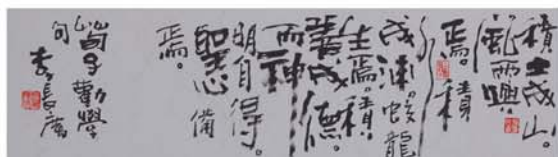 積土成山。
風雨興
焉。積
水
成渊。蛟龍
生焉。積
善成德。
而神
明自得。
聖心備
焉。
荀子勸學
句 李長廣